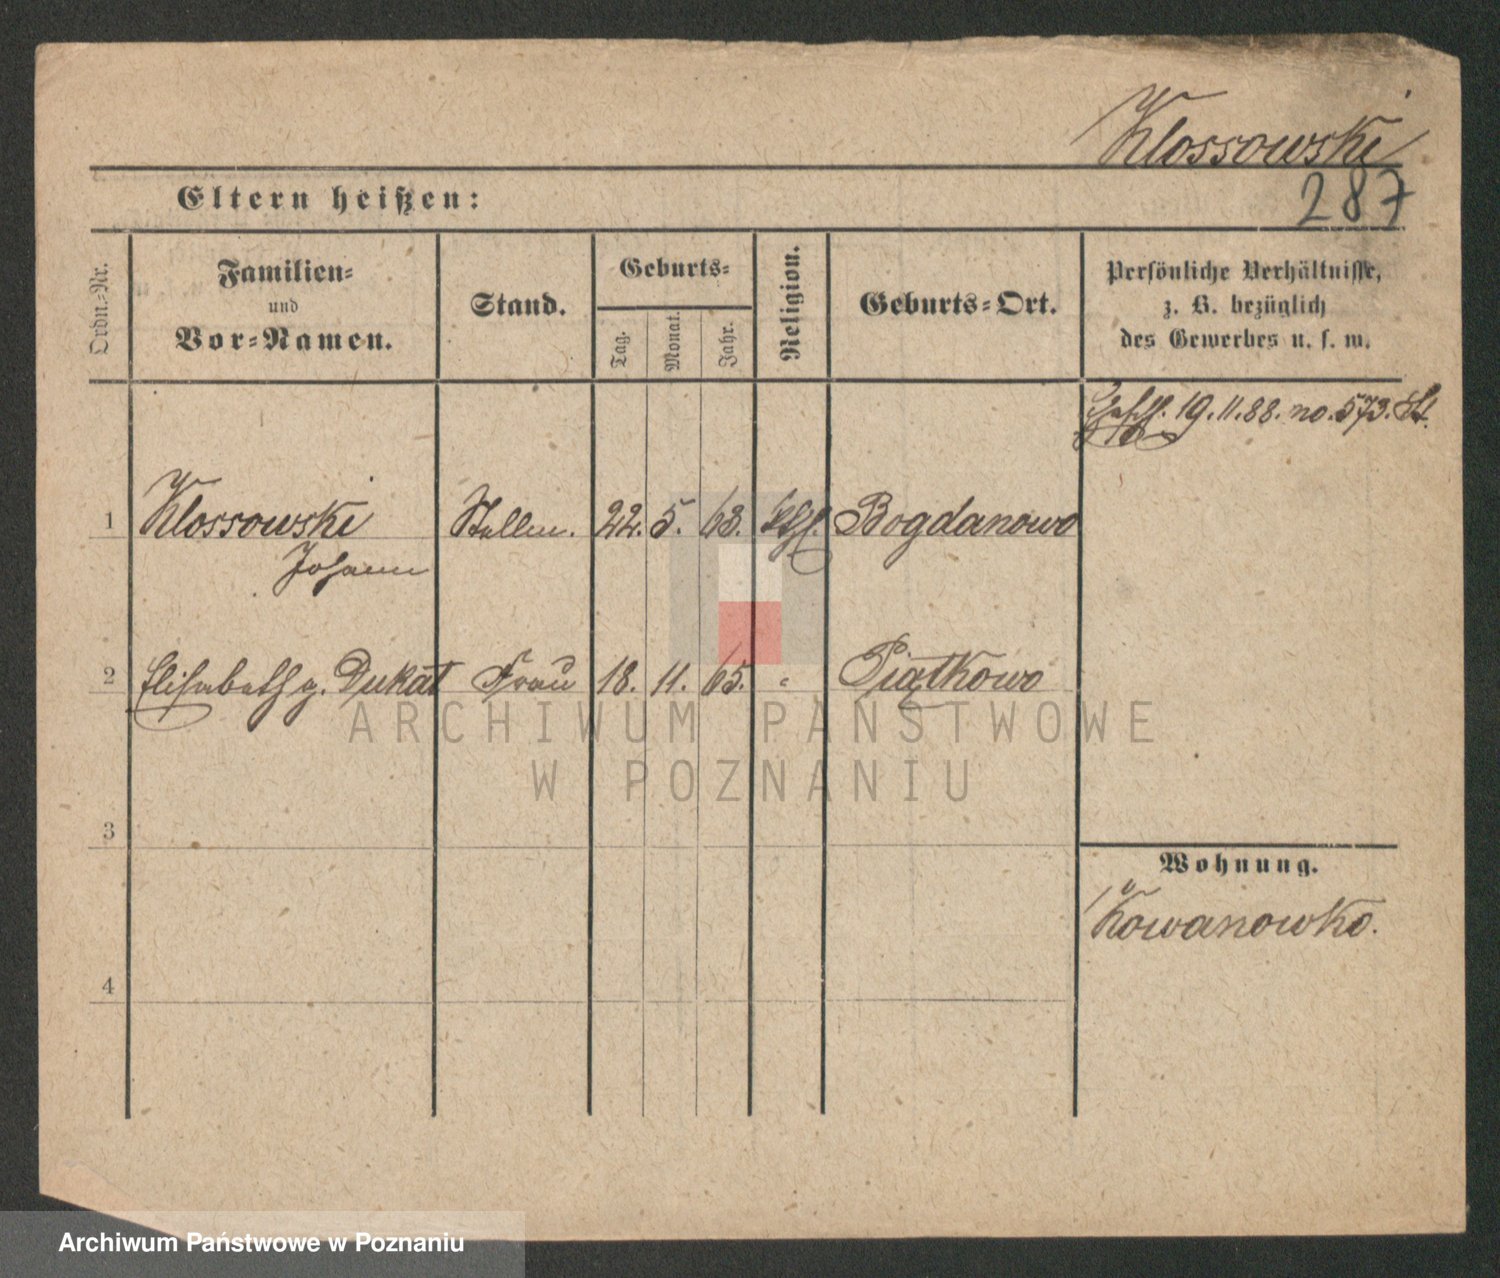 Klossowski
287
Eltern heißen:
Ordn.-Nr.
Familien-
und
Vor-Namen.
Stand.
Geburts-
Tag.
Monat.
Jahr.
Religion.
Geburts-Ort.
Persönliche Verhältnisse,
z. B. bezüglich
des Gewerbes u. s. w.
19.11.88. no. 573. St.
1 Klossowski Stellm. 22. 5. 63. kth. Bogdanowo
Johann
2 Elisabeth g. Dukat Frau 18. 11. 65. " Piątkowo
ARCHIWUM PAŃSTWOWE
W POZNANIU
3
Wohnung.
Kowanowko.
4
Archiwum Państwowe w Poznaniu